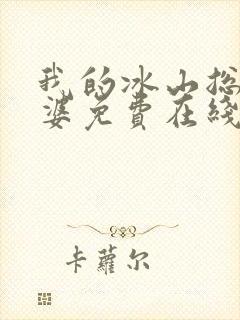 我的冰山总
婆免費在綫
卡蘿尔